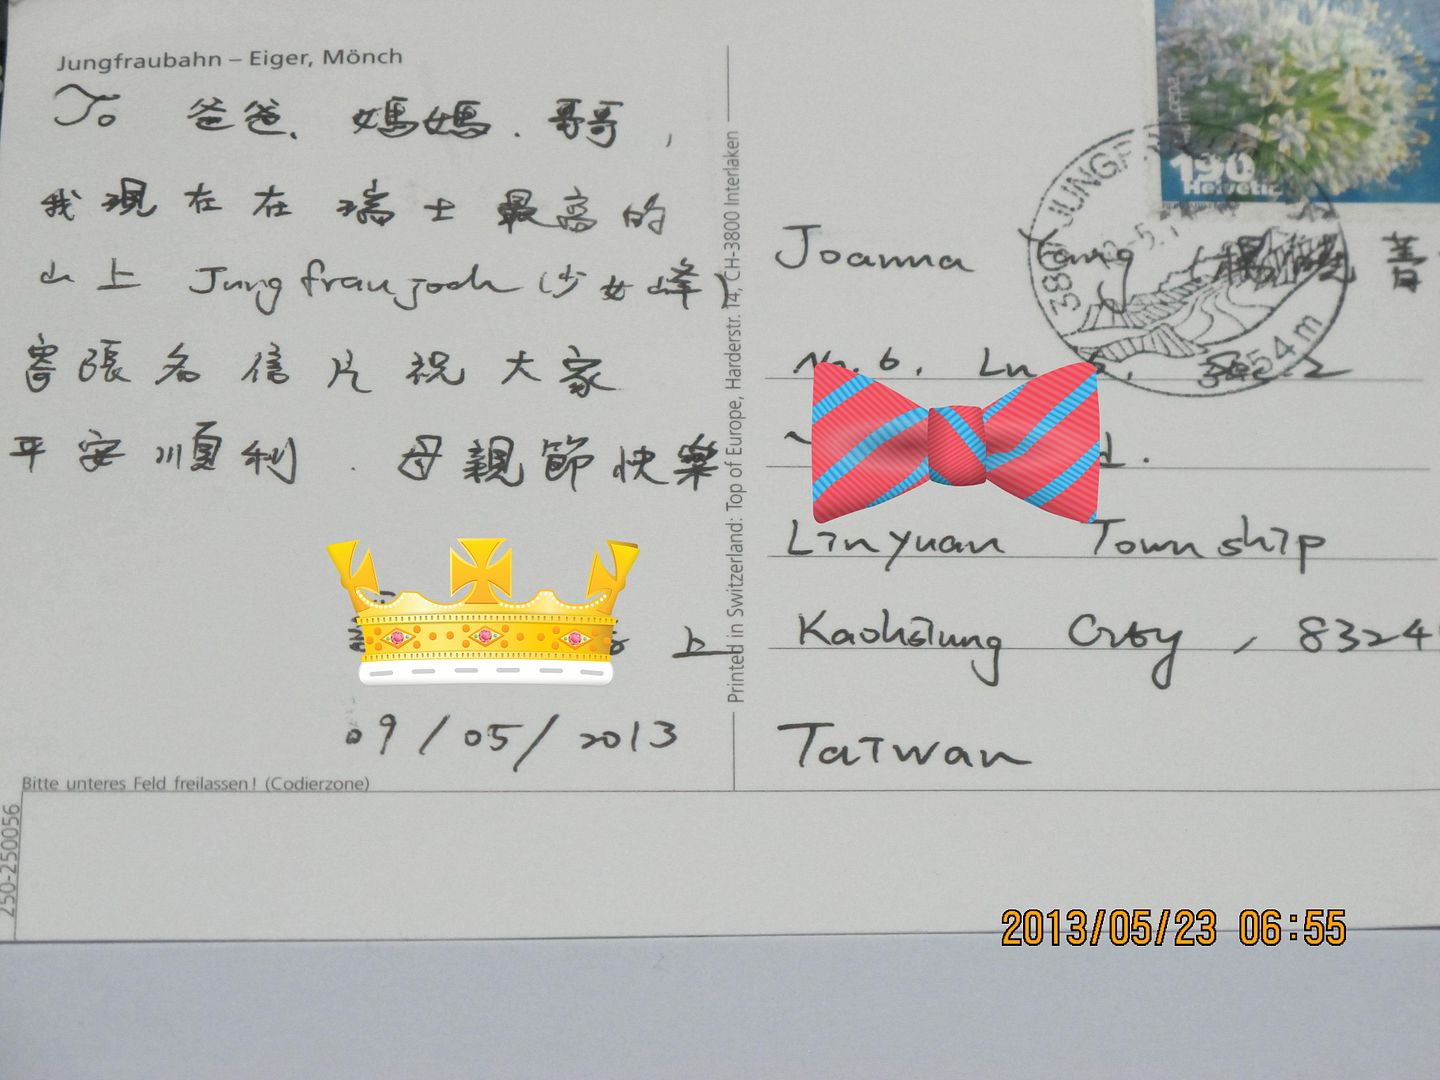 Jungfraubahn – Eiger, Mönch
To 爸爸、媽媽、哥哥,
我現在在瑞士最高的
山上 Jungfraujoch (少女峰)
寄張名信片祝大家
平安順利. 母親節快樂
上
09/05/2013
Bitte unteres Feld freilassen! (Codierzone)
250-250056
Printed in Switzerland: Top of Europe, Harderstr. 14, CH-3800 Interlaken
190
Helvetia
3801 JUNGF
3454 m
Joanna Yang
No. 6, Ln
Linyuan Township
Kaohsiung City, 8324
Taiwan
2013/05/23 06:55